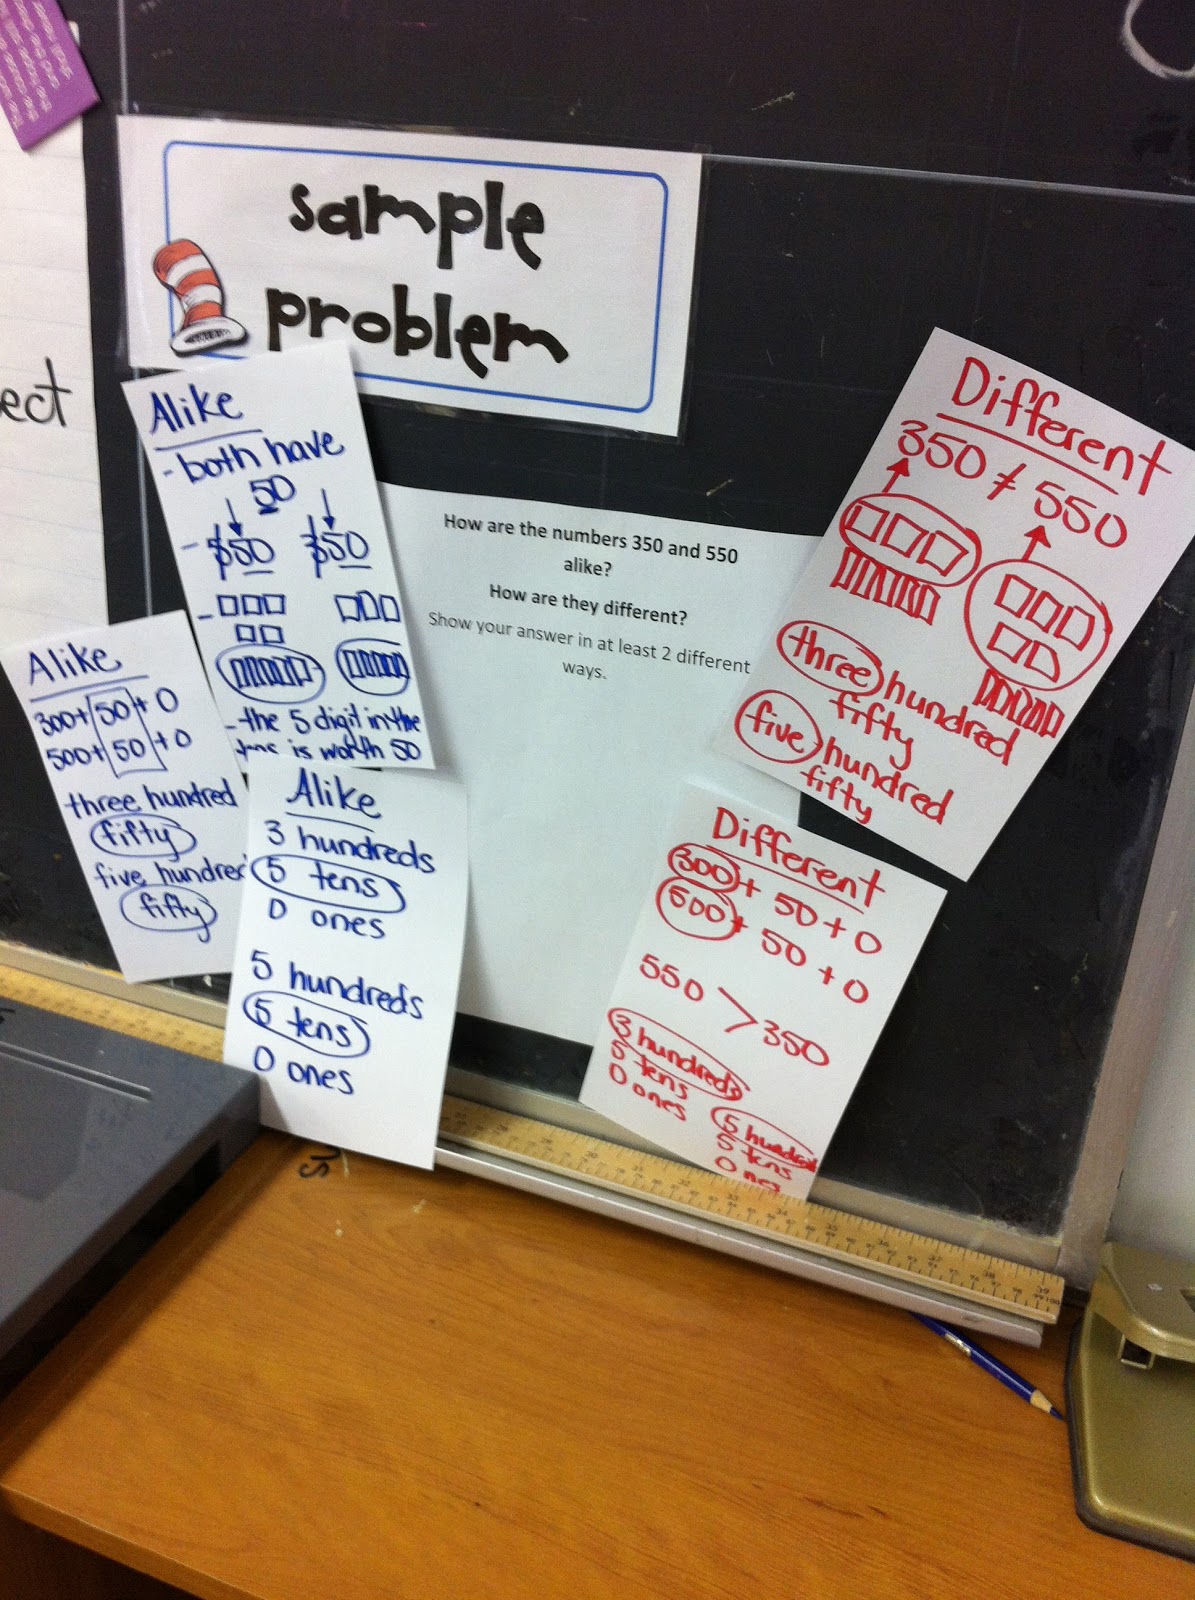 ect
sample
problem
Alike
- both have
50
- 350 350
-
- the 5 digit in the
is worth 50
How are the numbers 350 and 550
alike?
How are they different?
Show your answer in at least 2 different
ways.
Different
350 ≠ 550
three hundred
fifty
five hundred
fifty
Alike
300+ 50 + 0
500+ 50 + 0
three hundred
fifty
five hundred
fifty
Alike
3 hundreds
5 tens
0 ones
5 hundreds
5 tens
0 ones
Different
300 + 50 + 0
500 + 50 + 0
550 > 350
3 hundreds
5 tens
0 ones
5 hundreds
5 tens
0 ones